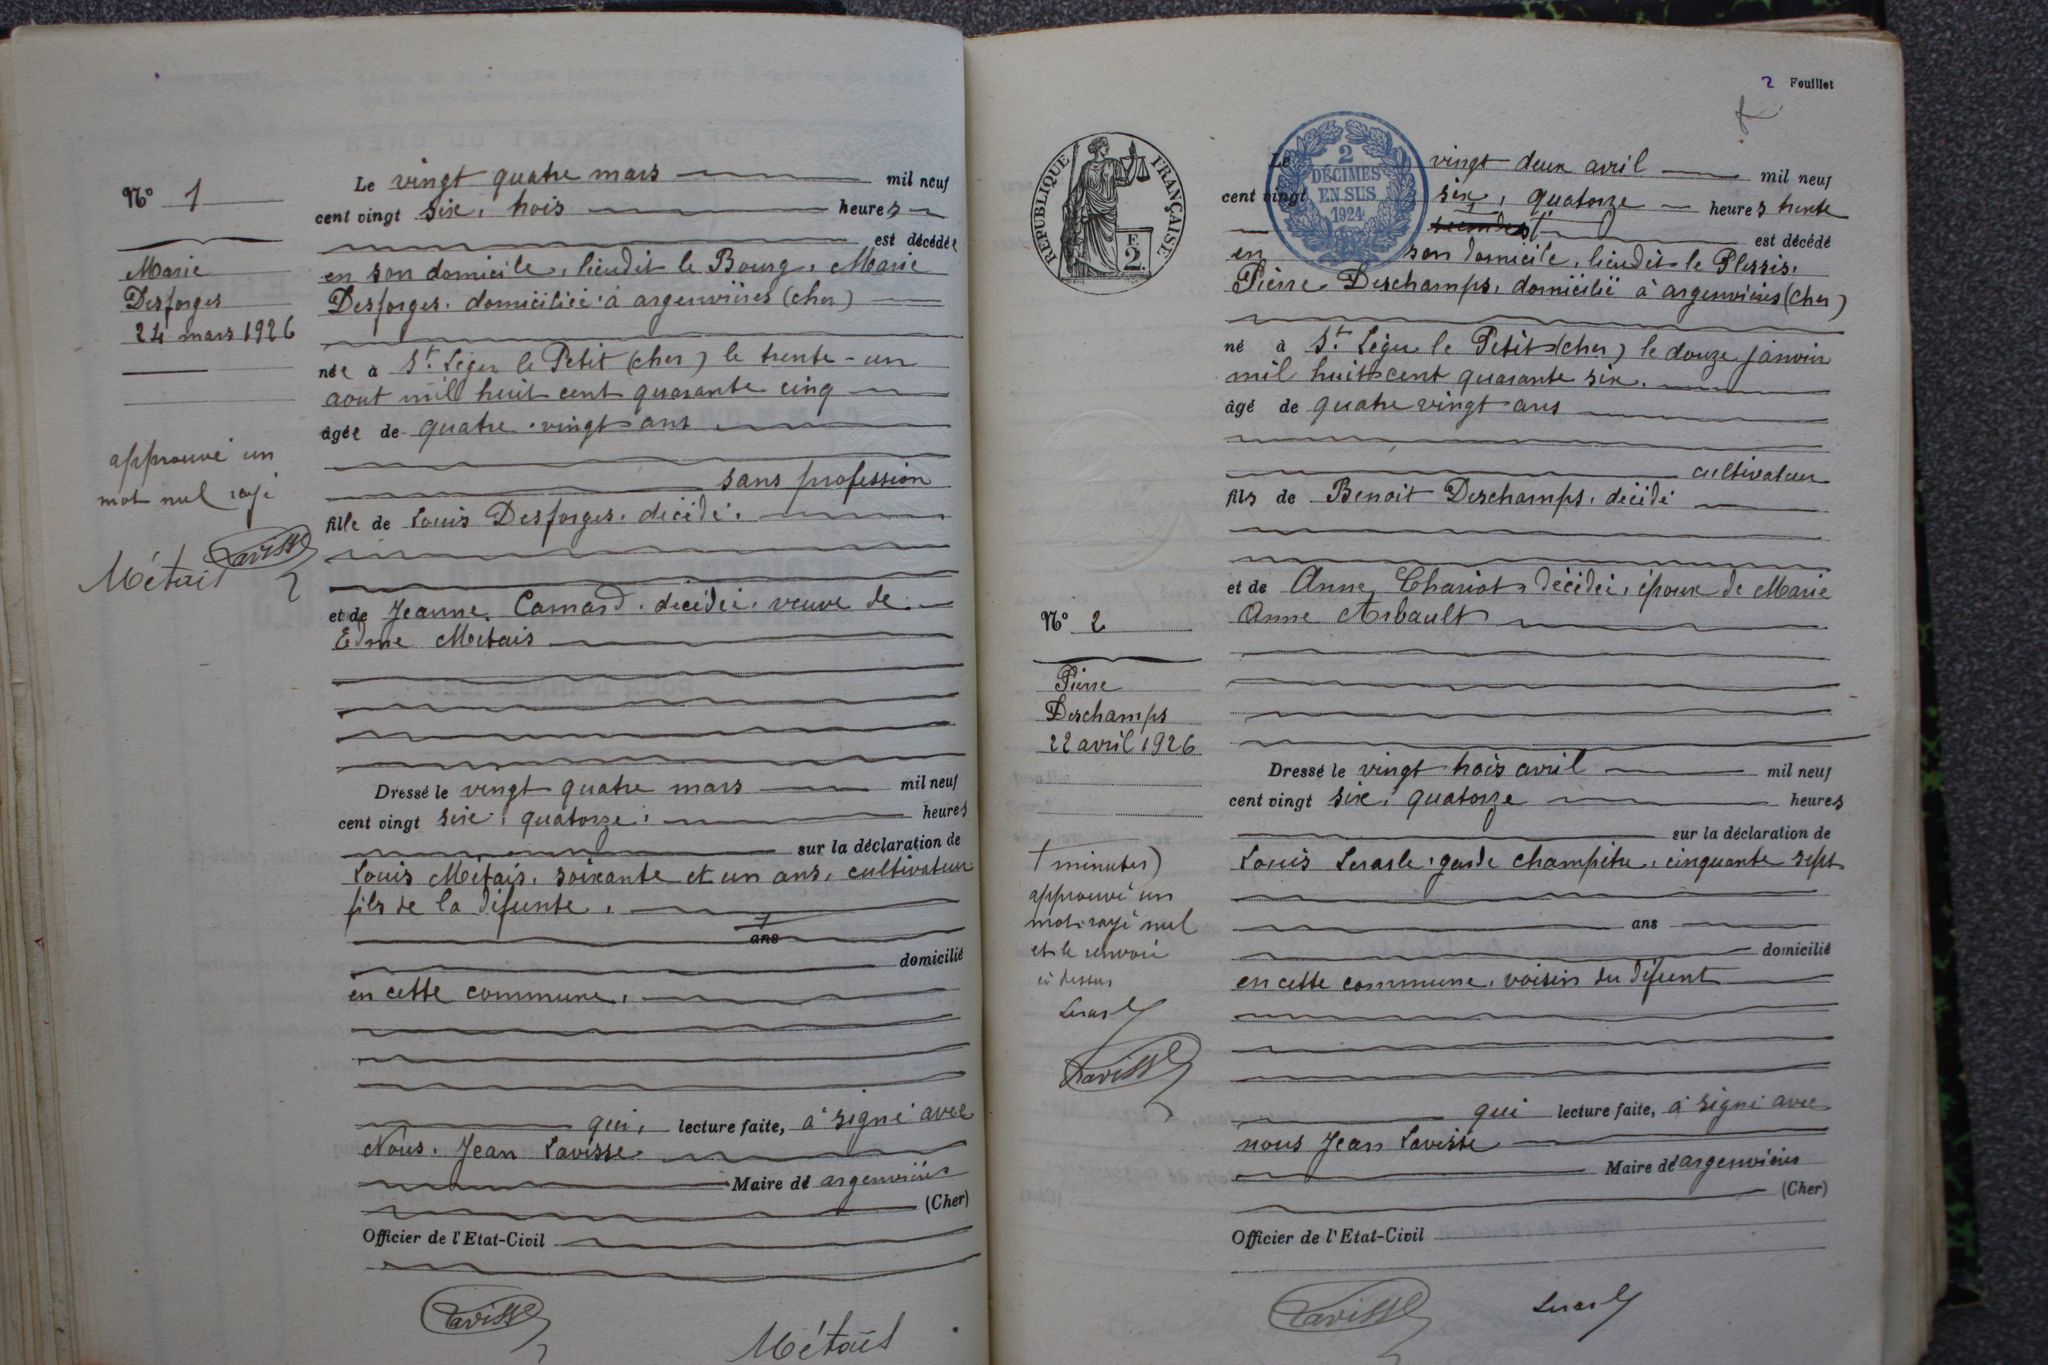 N° 1
Marie
Desforges
24 mars 1926
approuvé un
mot nul rayé
Lavisse
Métais
Le vingt quatre mars mil neuf
cent vingt six, trois heures
est décédée
en son domicile, lieudit le Bourg, Marie
Desforges, domiciliée à argenvières (cher)
née à St. Léger le Petit (cher) le trente-un
aout mil huit cent quarante cinq
âgée de quatre-vingt ans
sans profession
fille de Louis Desforges, décédé.
et de Jeanne Camard, décédée, veuve de
Edme Métais
Dressé le vingt quatre mars mil neuf
cent vingt six, quatorze, heures
sur la déclaration de
Louis Métais, soixante et un ans, cultivateur
fils de la défunte,
ans
domicilié
en cette commune,
qui, lecture faite, à signé avec
Nous, Jean Lavisse
Maire de argenvières
(Cher)
Officier de l'Etat-Civil
Lavisse
Métais
2 Feuillet
RÉPUBLIQUE FRANÇAISE
F
2
2
DÉCIMES
EN SUS
1924
Le vingt deux avril mil neuf
cent vingt six, quatorze heures trente
est décédé
en son domicile, lieudit le Plessis,
Pierre Deschamps, domicilié à argenvières (cher)
né à St. Léger le Petit (cher) le douze janvier
mil huit cent quarante six.
âgé de quatre vingt ans
cultivateur
fils de Benoit Deschamps, décédé
et de Anne Chariot, décédée, époux de Marie
Anne Arbault
N° 2
Pierre
Deschamps
22 avril 1926
Dressé le vingt trois avril mil neuf
cent vingt six, quatorze heures
sur la déclaration de
Louis Lerasle, garde champêtre, cinquante sept
ans
domicilié
en cette commune, voisin du défunt
† minutes)
approuvé un
mot rayé nul
et le renvoi
ci dessus
Lerasle
Lavisse
qui lecture faite, à signé avec
nous Jean Lavisse
Maire de argenvières
(Cher)
Officier de l'Etat-Civil
Lavisse
Lerasle